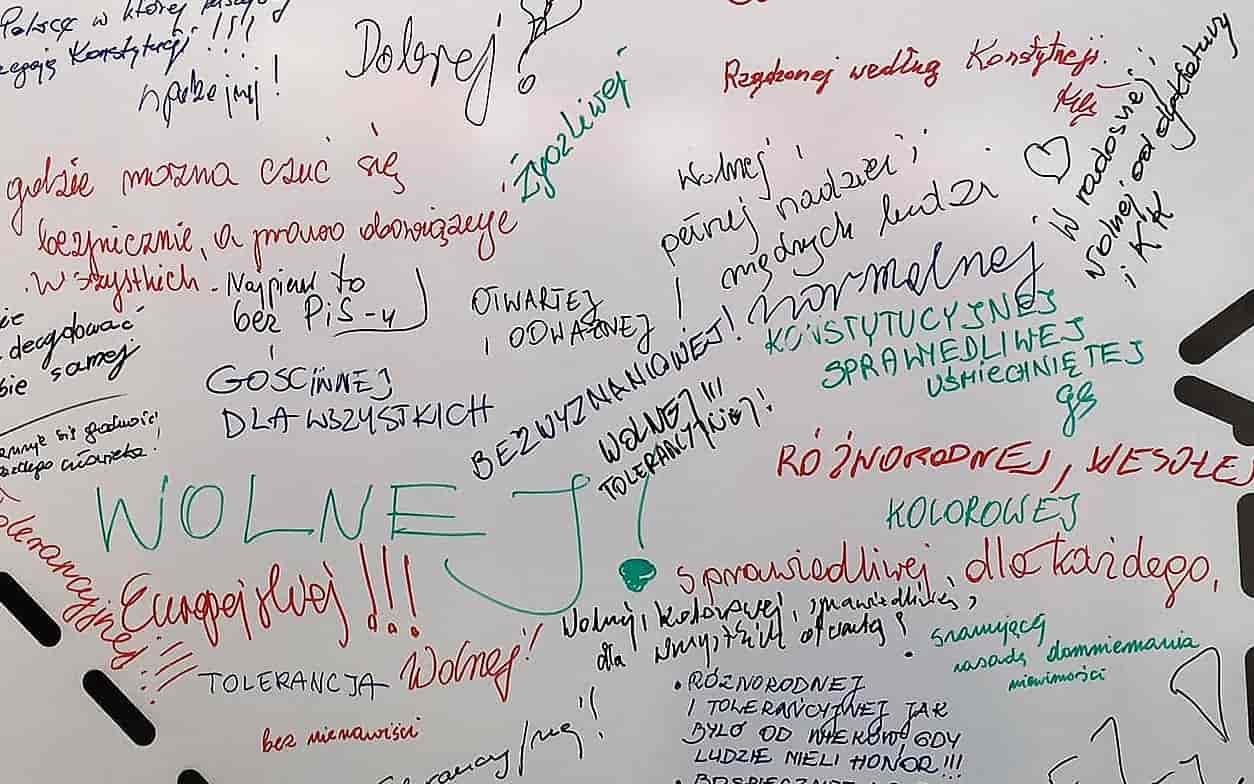 Polskę w której
Konstytucji !!!
Dobrej!
Rządzonej według Konstytucji.
Życzliwej
gdzie można czuć się
bezpiecznie, a prawo obowiązuje
wszystkich.
Najpierw to
bez PiS-u
Wolnej,
pełnej nadziei i
mądrych ludzi
W radosnej,
wolnej od dyktatury
i KK
normalnej
decydować
sobie samej
OTWARTEJ
I ODWAŻNEJ!
GOŚCINNEJ
DLA WSZYSTKICH
BEZWYZNANIOWEJ!
KONSTYTUCYJNEJ
SPRAWIEDLIWEJ
UŚMIECHNIĘTEJ
gs
WOLNEJ!!!
TOLERANCYJNEJ!
RÓŻNORODNEJ, WESOŁEJ
KOLOROWEJ
WOLNEJ!
Tolerancyjnej!!!
Europejskiej!!!
sprawiedliwej, dla każdego,
Wolnej, kolorowej, sprawiedliwej,
dla wszystkich otwartej
Wolnej!
TOLERANCJA
bez nienawiści
szanującej
zasadę domniemania
niewinności
• RÓŻNORODNEJ
I TOLERANCYJNEJ JAK
BYŁO OD WIEKÓW GDY
LUDZIE MIELI HONOR!!!